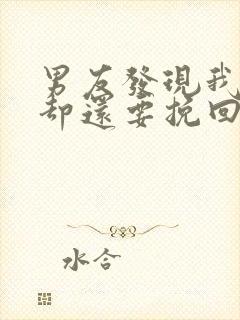 男友發現我
却還要挽回
水合